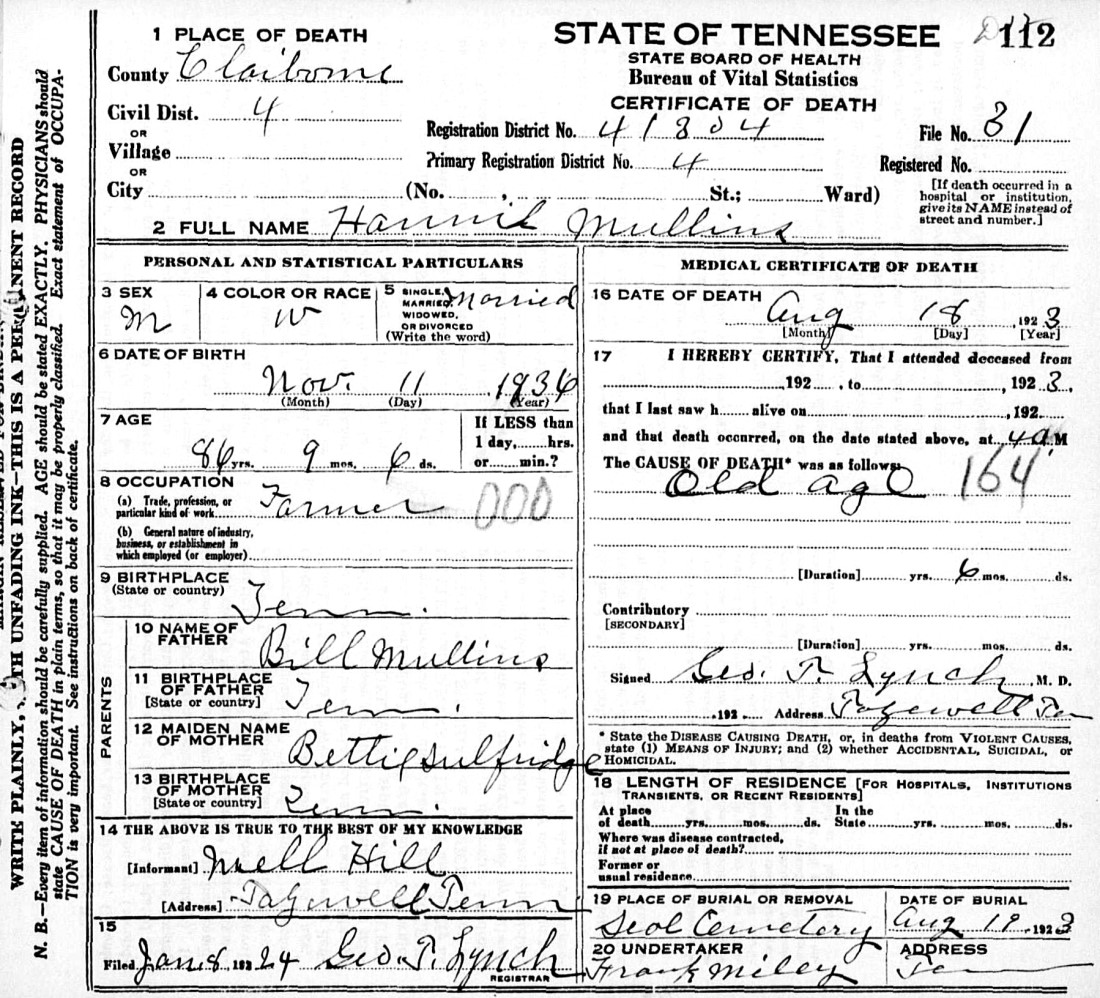 1 PLACE OF DEATH
County Claiborne
Civil Dist. 4
OR
Village
OR
City (No. , St.; Ward)
STATE OF TENNESSEE 112
STATE BOARD OF HEALTH
Bureau of Vital Statistics
CERTIFICATE OF DEATH
Registration District No. 41804 File No. 31
Primary Registration District No. 4 Registered No.
[If death occurred in a
hospital or institution,
give its NAME instead of
street and number.]
2 FULL NAME Mullins
PERSONAL AND STATISTICAL PARTICULARS
3 SEX M
4 COLOR OR RACE W
5 SINGLE, MARRIED, WIDOWED, OR DIVORCED (Write the word) Married
6 DATE OF BIRTH
Nov. 11 1936
(Month) (Day) (Year)
7 AGE
86 yrs. 9 mos. 6 ds.
If LESS than
1 day, hrs.
or min.?
8 OCCUPATION
(a) Trade, profession, or
particular kind of work Farmer 000
(b) General nature of industry,
business, or establishment in
which employed (or employer)
9 BIRTHPLACE
(State or country) Tenn.
PARENTS
10 NAME OF
FATHER Bill Mullins
11 BIRTHPLACE
OF FATHER
[State or country] Tenn.
12 MAIDEN NAME
OF MOTHER Bettie Sulfridge
13 BIRTHPLACE
OF MOTHER
[State or country] Tenn.
14 THE ABOVE IS TRUE TO THE BEST OF MY KNOWLEDGE
[Informant] Mell Hill
[Address] Tazewell Tenn
15
Filed Jan 8, 192 24 Geo. T. Lynch
REGISTRAR
MEDICAL CERTIFICATE OF DEATH
16 DATE OF DEATH
Aug 18 1923
[Month] [Day] [Year]
17 I HEREBY CERTIFY, That I attended deceased from
,192 , to , 1923,
that I last saw h alive on , 192
and that death occurred, on the date stated above, at 4 a M
The CAUSE OF DEATH* was as follows:
Old age 164
[Duration] yrs. 6 mos. ds.
Contributory
[SECONDARY]
[Duration] yrs. mos. ds.
Signed Geo. T. Lynch, M. D.
,192 . Address Tazewell Ten
* State the DISEASE CAUSING DEATH, or, in deaths from VIOLENT CAUSES,
state (1) MEANS OF INJURY; and (2) whether ACCIDENTAL, SUICIDAL, or
HOMICIDAL.
18 LENGTH OF RESIDENCE [FOR HOSPITALS, INSTITUTIONS
TRANSIENTS, OR RECENT RESIDENTS]
At place of death yrs. mos. ds. In the State yrs. mos. ds.
Where was disease contracted,
if not at place of death?
Former or
usual residence
19 PLACE OF BURIAL OR REMOVAL
Cemetery
DATE OF BURIAL
Aug 19, 1923
20 UNDERTAKER
Frank Miley
ADDRESS
Ten
WRITE PLAINLY, WITH UNFADING INK—THIS IS A PERMANENT RECORD
N. B.—Every item of information should be carefully supplied. AGE should be stated EXACTLY. PHYSICIANS should
state CAUSE OF DEATH in plain terms, so that it may be properly classified. Exact statement of OCCUPA-
TION is very important. See instructions on back of certificate.